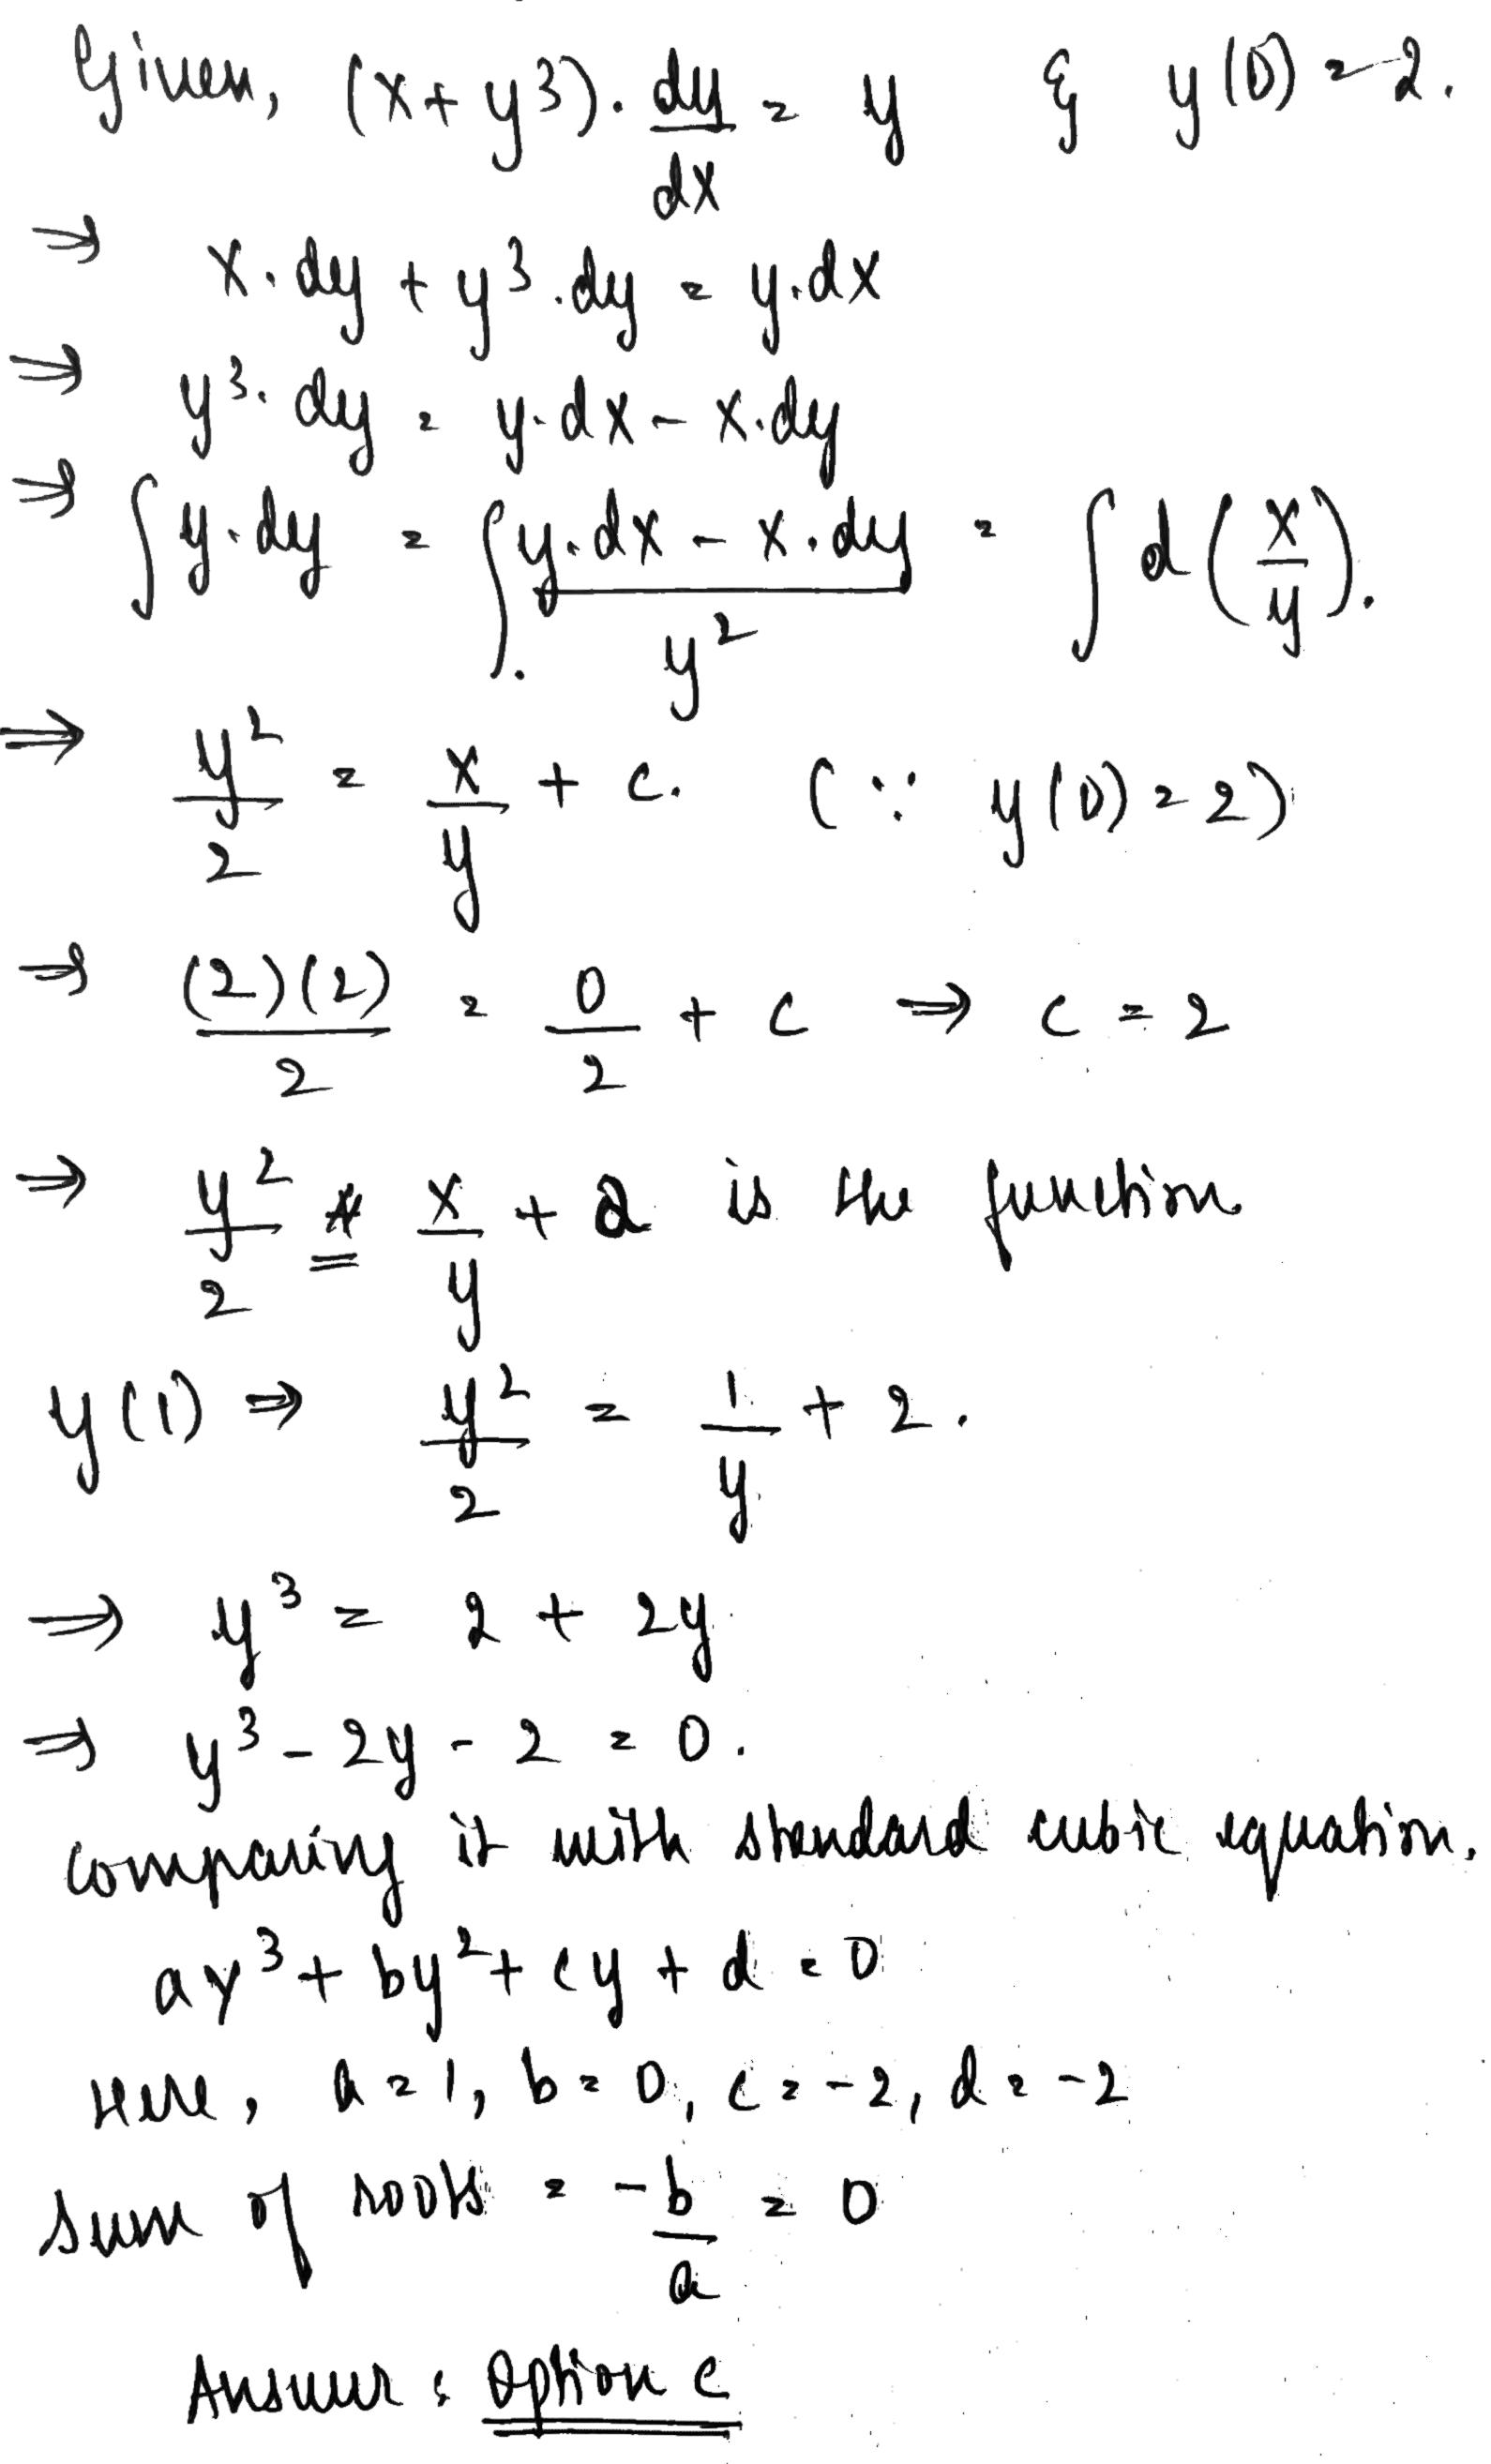 Given, (x + y³). dy/dx = y & y(0) = 2.
⇒ x.dy + y³.dy = y.dx
⇒ y³.dy = y.dx - x.dy
⇒ ∫y.dy = ∫(y.dx - x.dy)/y² = ∫d(x/y).
⇒ y²/2 = x/y + c. (∵ y(0) = 2)
⇒ (2)(2)/2 = 0/2 + c ⇒ c = 2
⇒ y²/2 = x/y + 2 is the function
y(1) ⇒ y²/2 = 1/y + 2.
⇒ y³ = 2 + 2y
⇒ y³ - 2y - 2 = 0.
comparing it with standard cubic equation,
ay³ + by² + cy + d = 0
Here, a = 1, b = 0, c = -2, d = -2
sum of roots = -b/a = 0
Answer : Option C